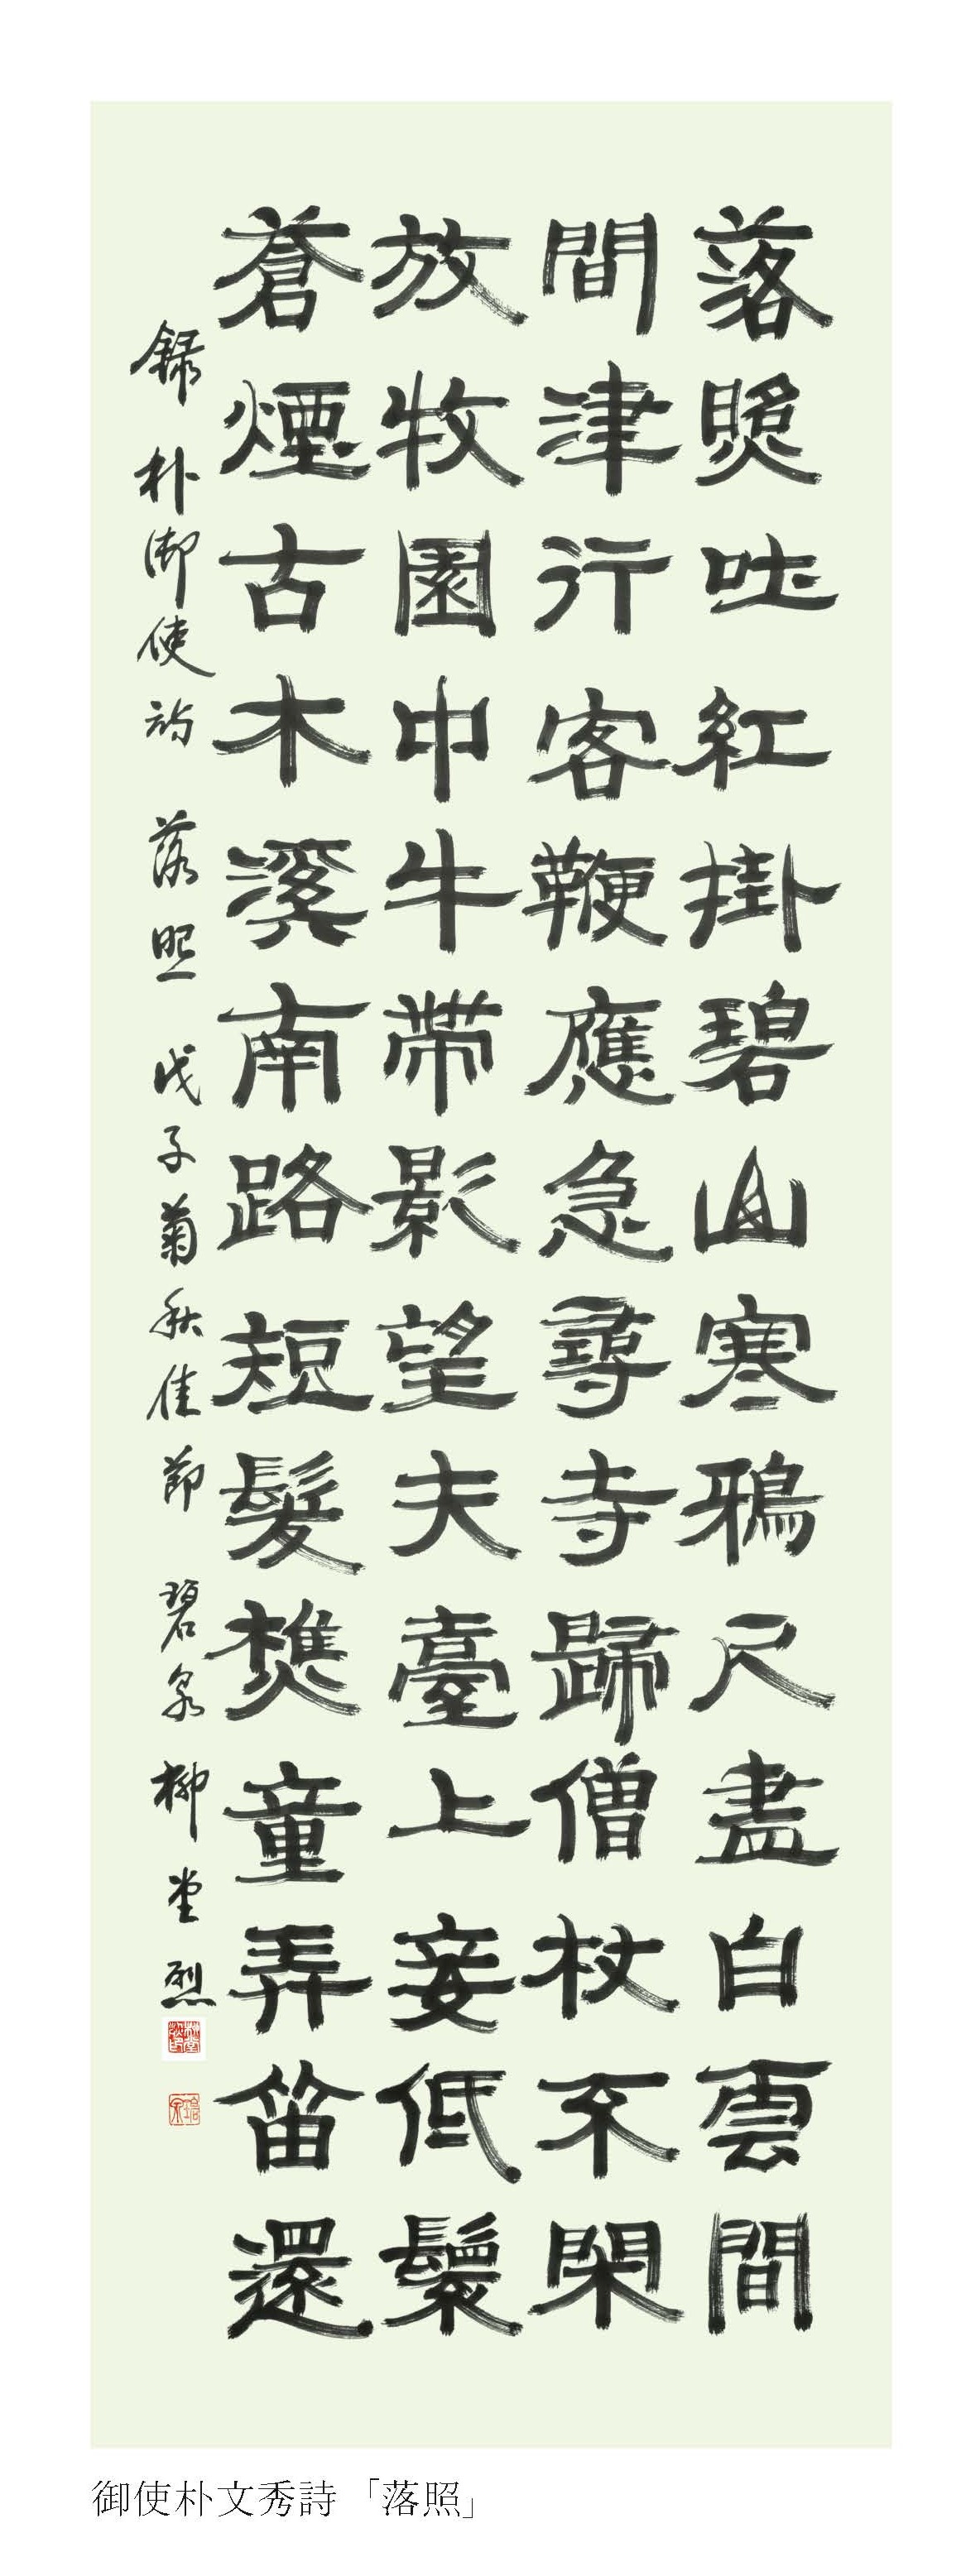 落照吐紅掛碧山寒鴉尺盡白雲間
間津行客鞭應急尋寺歸僧杖不閑
放牧園中牛帶影望夫臺上妾低鬟
蒼煙古木溪南路短髮樵童弄笛還
錄朴御使韵 落照 戊子菊秋佳節 碧泉 柳堂烈
御使朴文秀詩「落照」